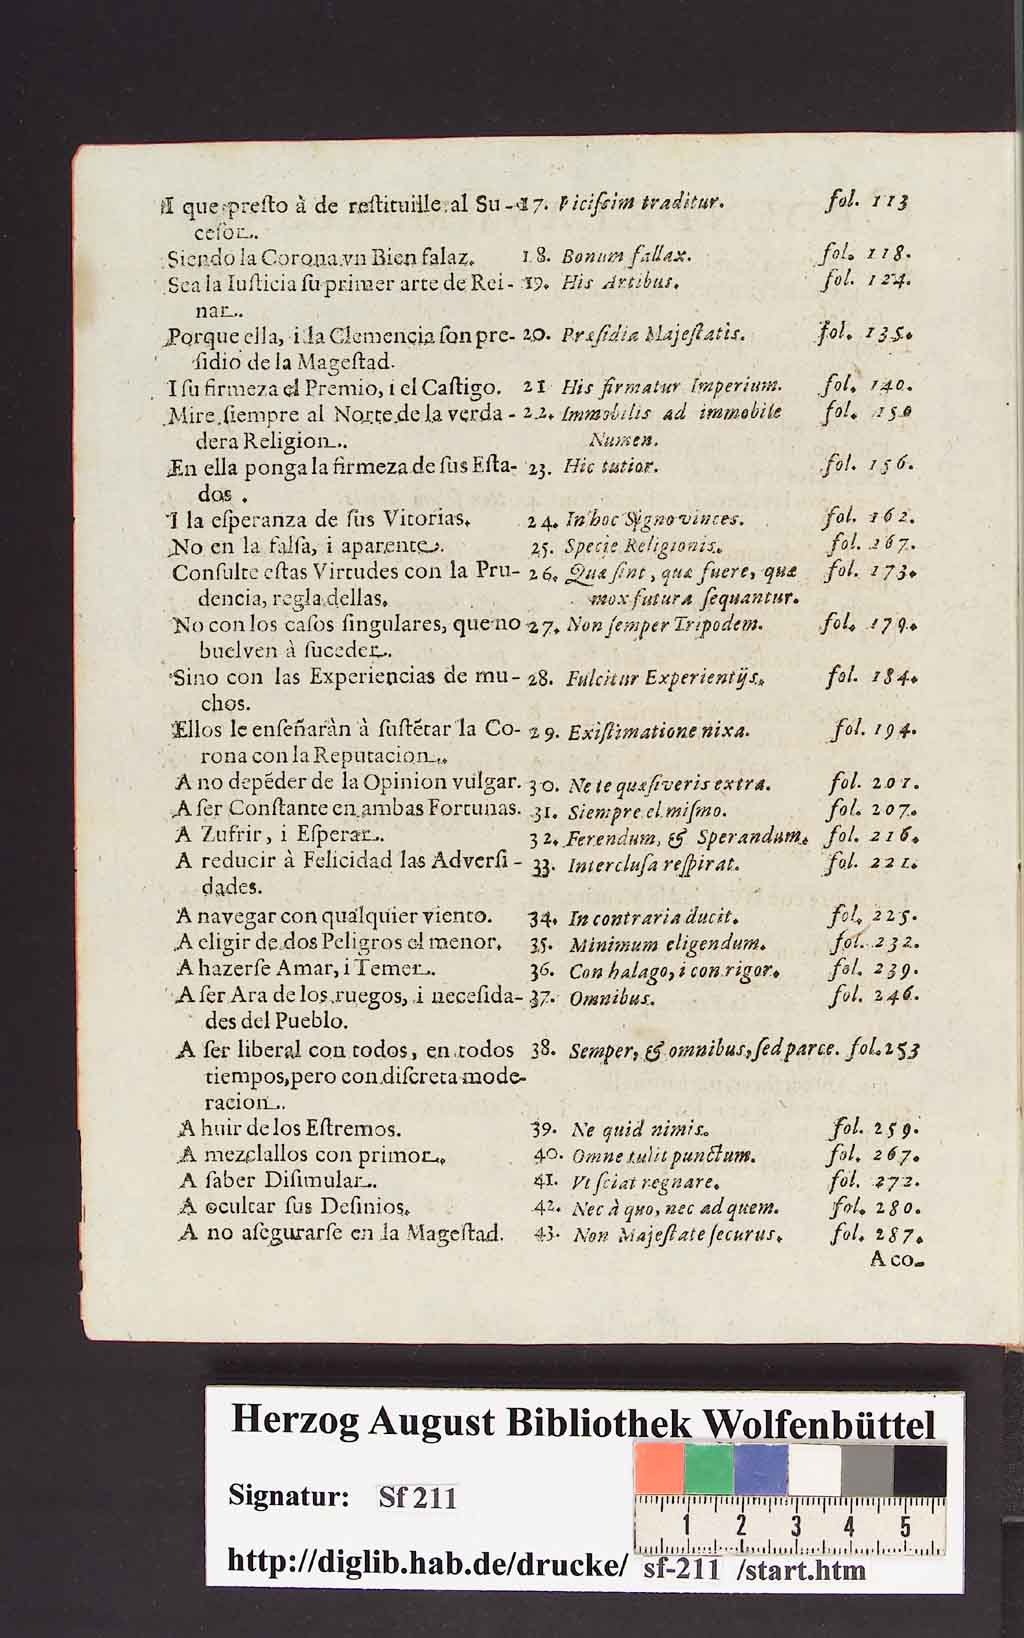 I que presto à de restituille al Su- 17. Vicissim traditur. fol. 113
cesor.
Siendo la Corona vn Bien falaz. 18. Bonum fallax. fol. 118.
Sea la Iusticia su primer arte de Rei- 19. His Artibus. fol. 124.
nar.
Porque ella, i la Clemencia son pre- 20. Præsidia Majestatis. fol. 135.
sidio de la Magestad.
I su firmeza el Premio, i el Castigo. 21 His firmatur Imperium. fol. 140.
Mire siempre al Norte de la verda- 22. Immobilis ad immobile fol. 150
dera Religion. Numen.
En ella ponga la firmeza de sus Esta- 23. Hic tutior. fol. 156.
dos.
I la esperanza de sus Vitorias. 24. In hoc Signo vinces. fol. 162.
No en la falsa, i aparente. 25. Specie Religionis. fol. 167.
Consulte estas Virtudes con la Pru- 26. Quæ sint, quæ fuere, quæ fol. 173.
dencia, regla dellas. mox futura sequantur.
No con los casos singulares, que no 27. Non semper Tripodem. fol. 179.
buelven à suceder.
Sino con las Experiencias de mu- 28. Fulcitur Experientijs. fol. 184.
chos.
Ellos le enseñaràn à sustẽtar la Co- 29. Existimatione nixa. fol. 194.
rona con la Reputacion.
A no depẽder de la Opinion vulgar. 30. Ne te quæsiveris extra. fol. 201.
A ser Constante en ambas Fortunas. 31. Siempre el mismo. fol. 207.
A Zufrir, i Esperar. 32. Ferendum, & Sperandum. fol. 216.
A reducir à Felicidad las Adversi- 33. Interclusa respirat. fol. 221.
dades.
A navegar con qualquier viento. 34. In contraria ducit. fol. 225.
A eligir de dos Peligros el menor. 35. Minimum eligendum. fol. 232.
A hazerse Amar, i Temer. 36. Con halago, i con rigor. fol. 239.
A ser Ara de los ruegos, i necesida- 37. Omnibus. fol. 246.
des del Pueblo.
A ser liberal con todos, en todos 38. Semper, & omnibus, sed parce. fol. 253
tiempos, pero con discreta mode-
racion.
A huir de los Estremos. 39. Ne quid nimis. fol. 259.
A mezclallos con primor. 40. Omne tulit punctum. fol. 267.
A saber Disimular. 41. Vt sciat regnare. fol. 272.
A ocultar sus Desinios. 42. Nec à quo, nec ad quem. fol. 280.
A no asegurarse en la Magestad. 43. Non Majestate securus. fol. 287.
A co-
Herzog August Bibliothek Wolfenbüttel
Signatur: Sf 211
1 2 3 4 5
http://diglib.hab.de/drucke/ sf-211 /start.htm